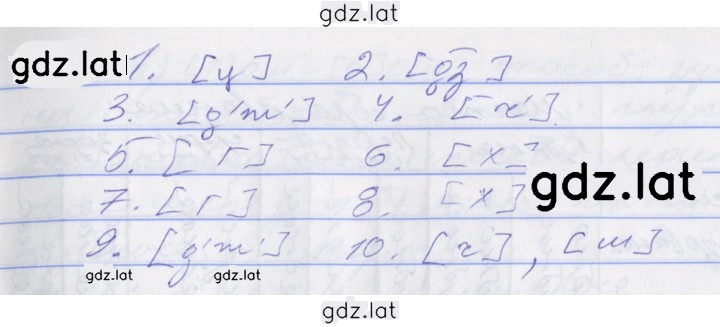 gdz.lat
gdz.lat 1. [ц] 2. [дз]
3. [д'т'] 4. [ч']
5. [г] 6. [х]
gdz.lat
7. [г] 8. [х]
9. [д'т'] 10. [г], [ш]
gdz.lat gdz.lat
gdz.lat